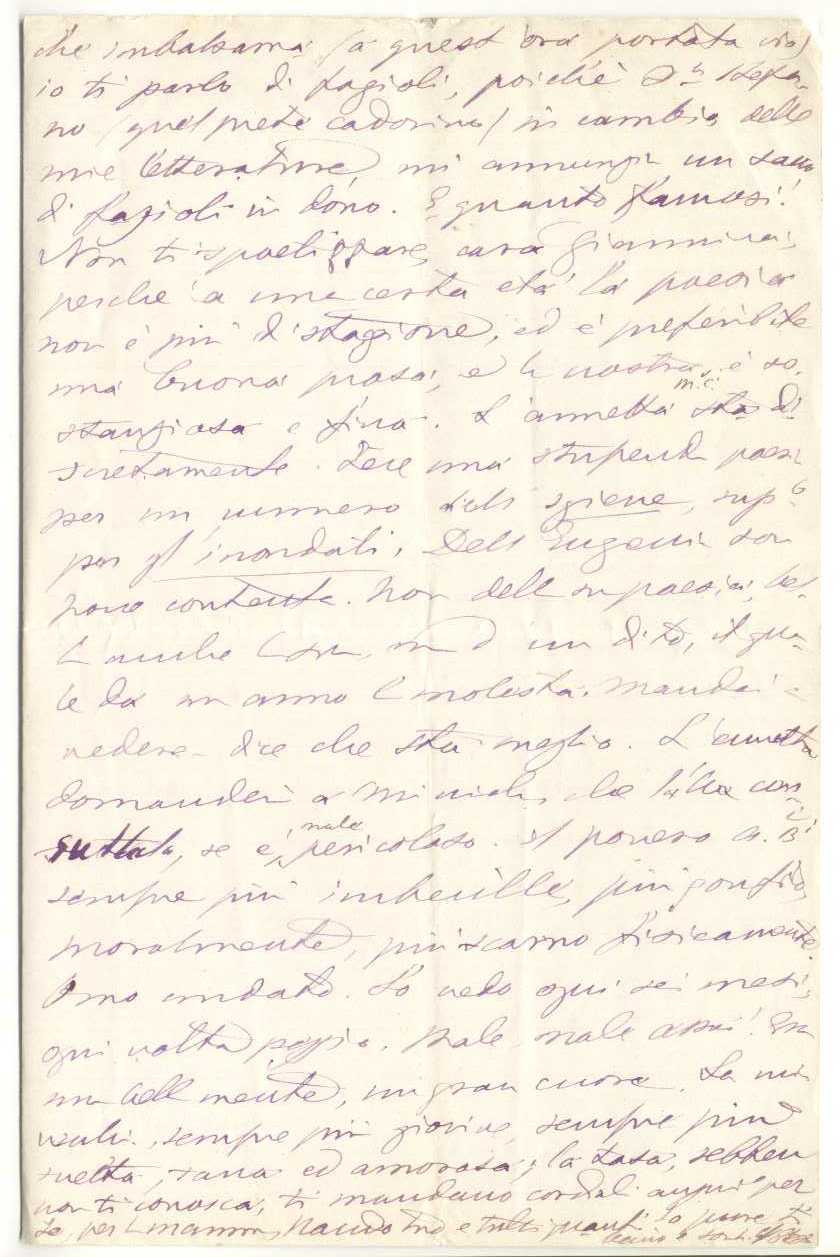 che imbalsama (a quest'ora portata via)
io ti parlo di fagioli, poichè Dn Stefa-
no (quel prete cadorino) in cambio delle
mie letterature, mi annunzia un sacco
di fagioli in dono. E quanto famosi!
Non ti, cara Giannina,
perchè a una certa età la poesia
non è più di stagione, ed è preferibile
una buona prosa, e la nostra è so-
stanziosa e fina. L'annetta sta di-
scretamente. Fece una stupenda poesia
per un numero dell' igiene,
per gl'inondati. Dell'Eugenia son
poco contenta. Non della sua poesia, bel-
la anche, ma d'un dito, il qua-
le da un anno la molesta. Mandai a
vedere - dice che sta meglio. L'annetta
domanderà a che l'ha con-
sultata, se è male pericoloso. Il povero
sempre più imbecille, più gonfio
moralmente, più scarno fisicamente.
Omo andato. Lo vedo ogni sei mesi,
ogni volta peggio. Male, male assai! Era
una bella mente, un gran cuore. La mia
sempre più giovine, sempre più
svelta, sana ed amorosa; la, sebben
non ti conosca, ti mandano cordiali auguri per
te, per la mamma, Nando e tutti quanti. Io pure ti
bacio e sono